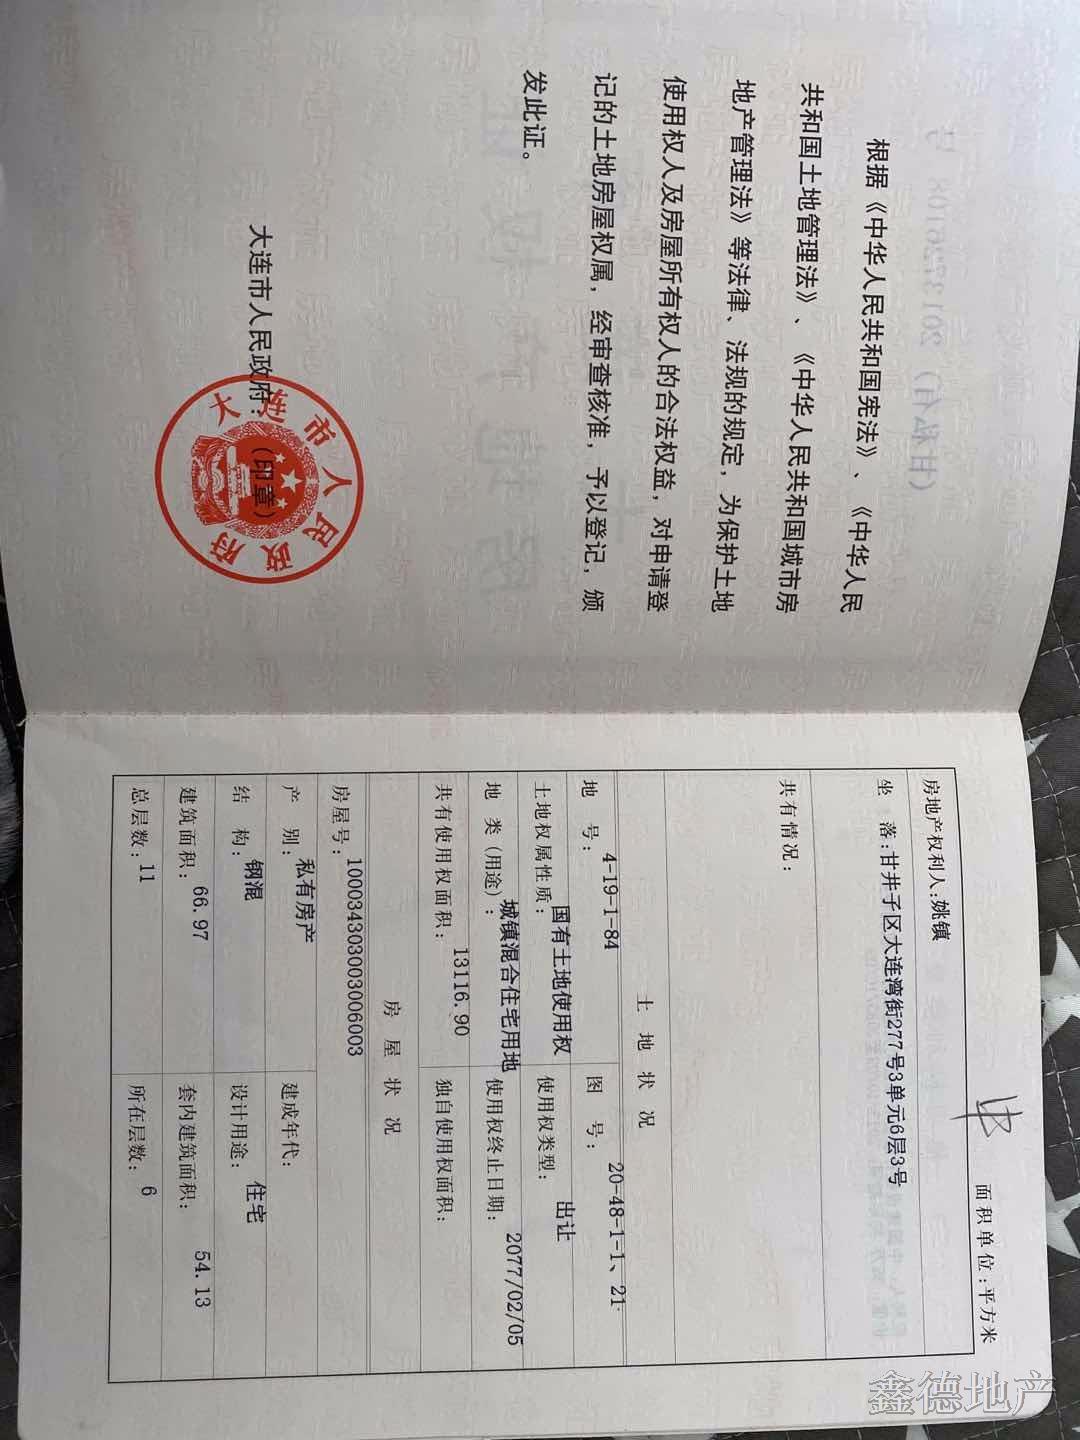 根据《中华人民共和国宪法》、《中华人民
共和国土地管理法》、《中华人民共和国城市房
地产管理法》等法律、法规的规定，为保护土地
使用权人及房屋所有权人的合法权益，对申请登
记的土地房屋权属，经审查核准，予以登记，颁
发此证。
大连市人民政府：（印章）
大连市人民政府
面积单位:平方米
房地产权利人:姚镇
坐 落:甘井子区大连湾街277号3单元6层3号
共有情况:
土 地 状 况
地 号: 4-19-1-84 图 号: 20-48-1-1、21-
土地权属性质: 国有土地使用权 使用权类型: 出让
地 类(用途): 城镇混合住宅用地 使用权终止日期: 2077/02/05
共有使用权面积: 13116.90 独自使用权面积:
房 屋 状 况
房屋号: 100034303003006003
产 别: 私有房产 建成年代:
结 构: 钢混 设计用途: 住宅
建筑面积: 66.97 套内建筑面积: 54.13
总层数: 11 所在层数: 6
鑫德地产